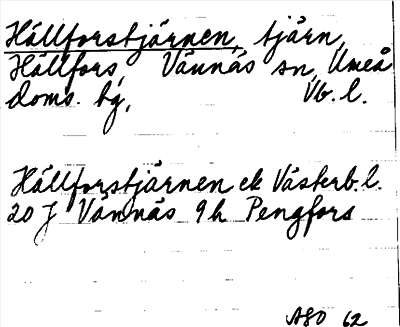 Hällforstjärnen, tjärn,
Hällfors, Vännäs sn, Umeå
doms. tg, Vb. l.
Hällforstjärnen ek Västerb. l.
20 J Vännäs 9h Pengfors
ASO 62